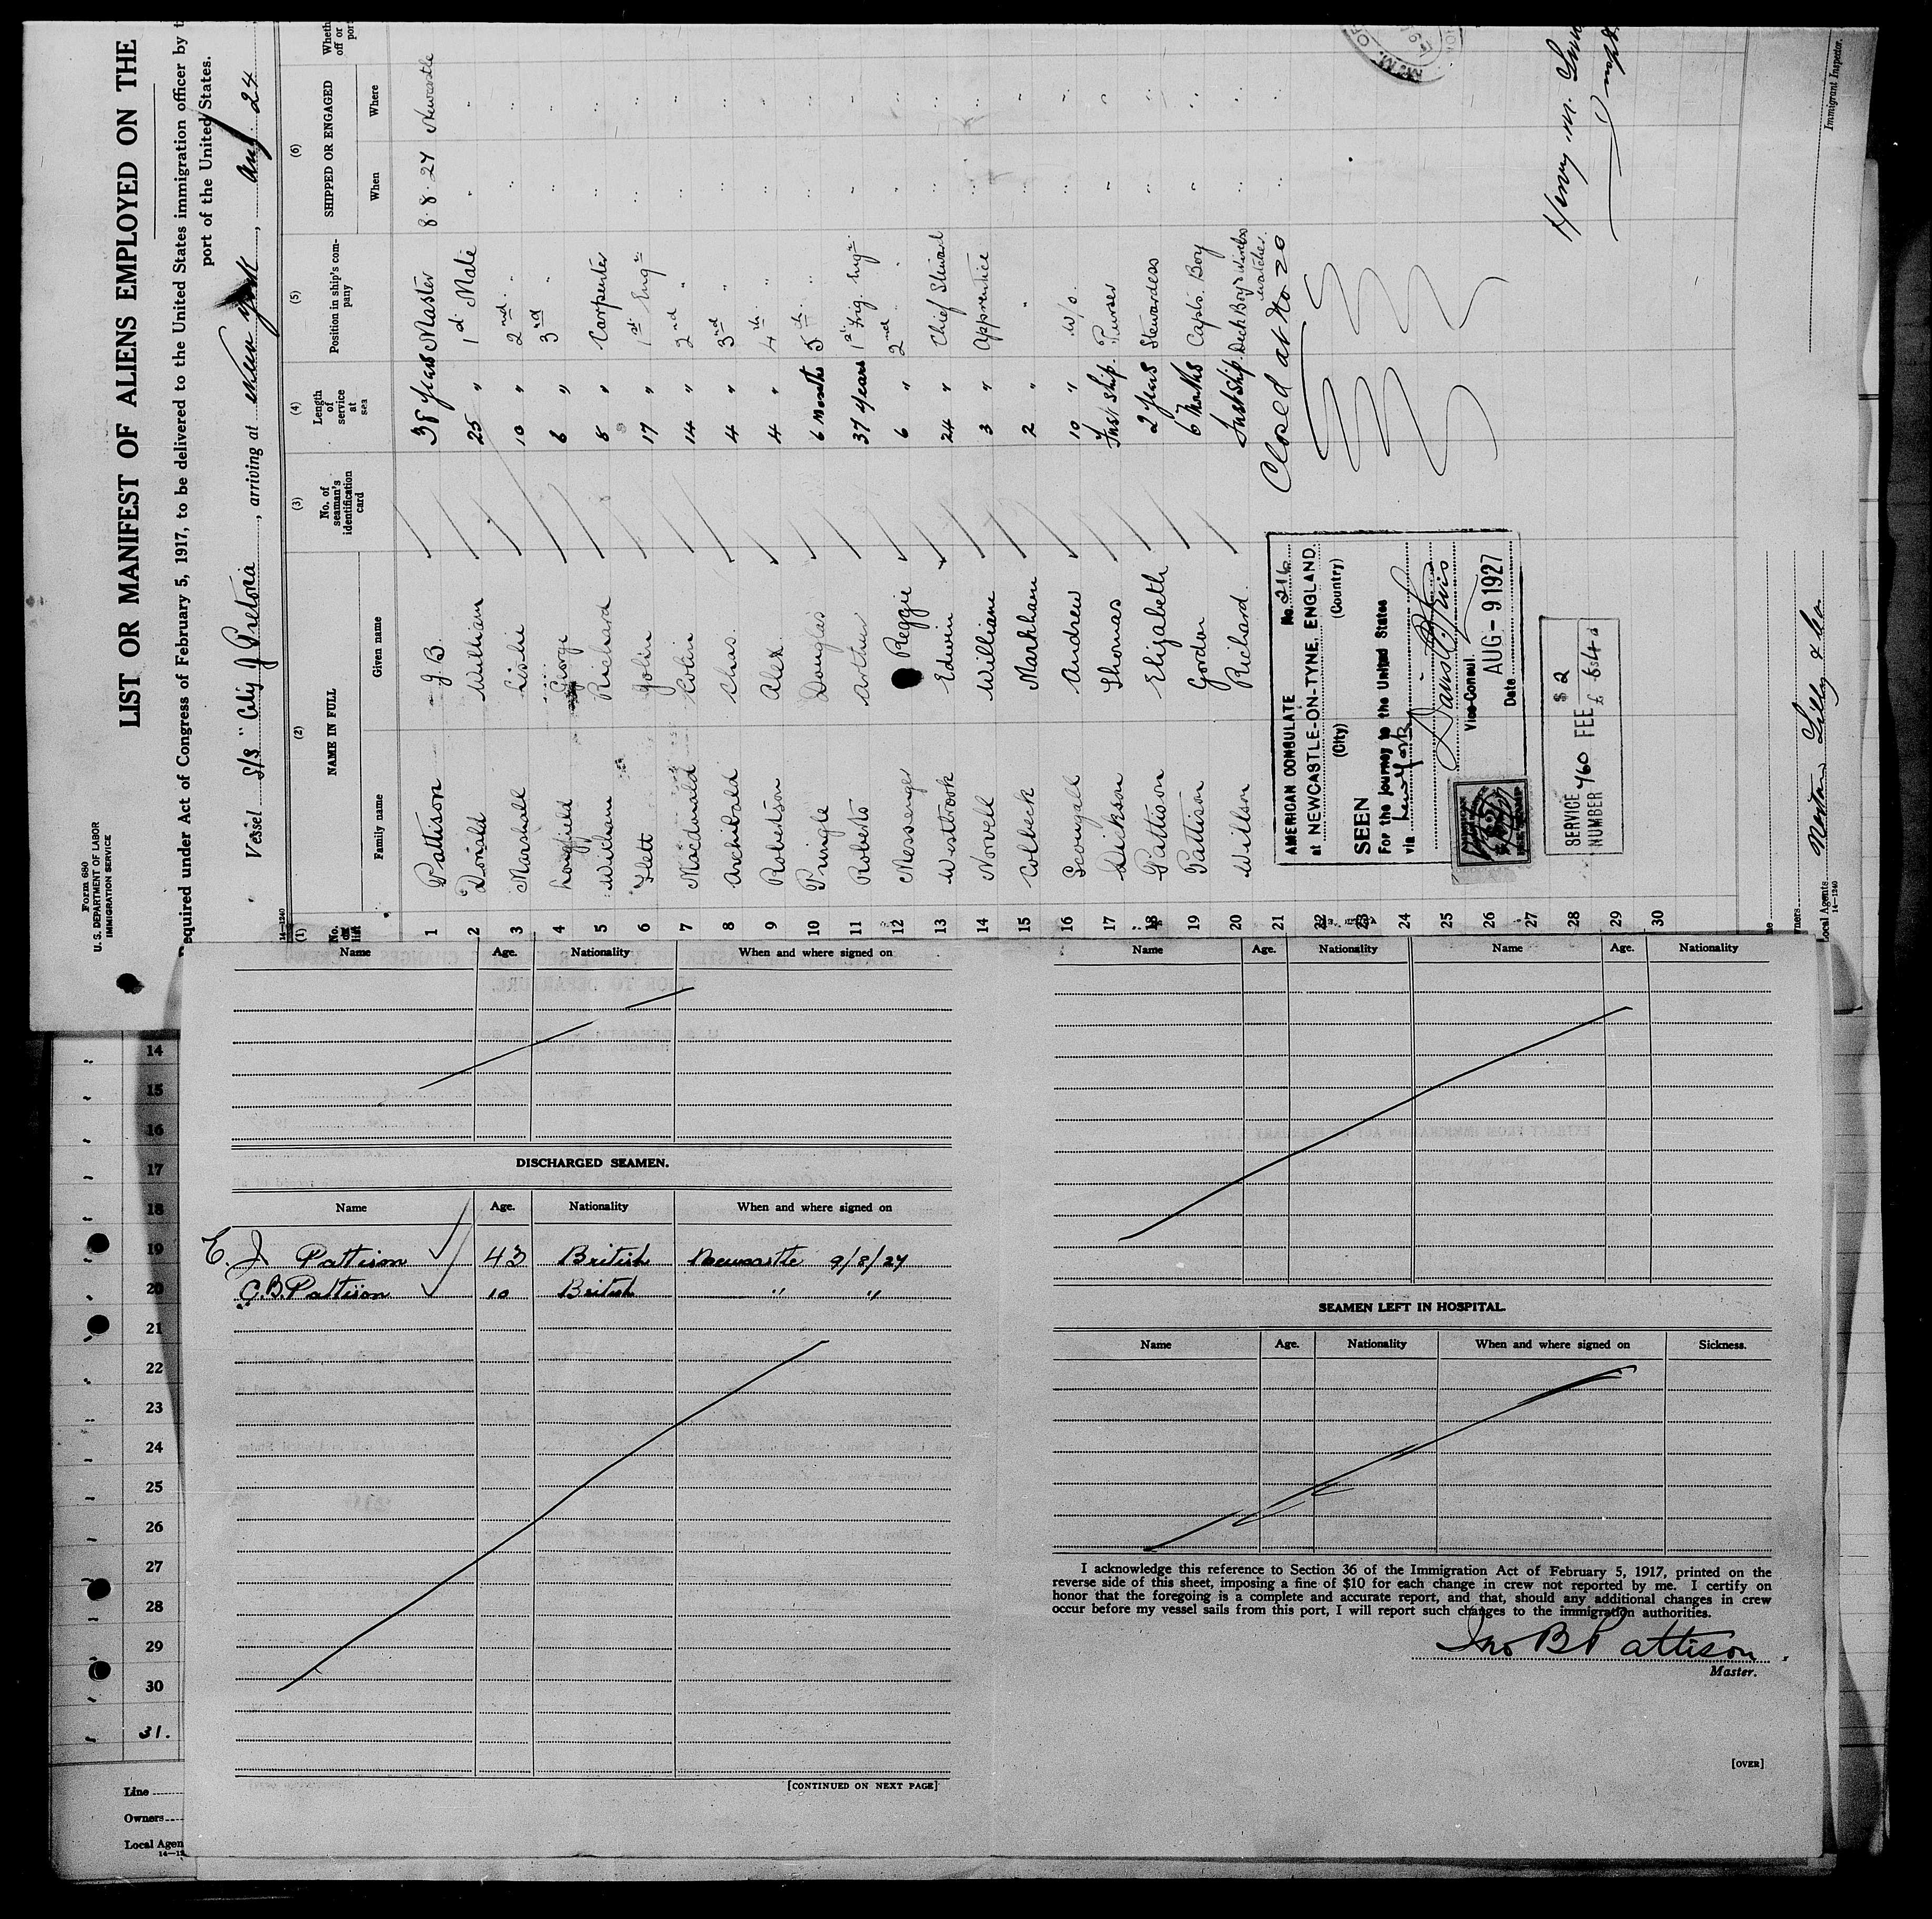 Form 680
U. S. DEPARTMENT OF LABOR
IMMIGRATION SERVICE
LIST OR MANIFEST OF ALIENS EMPLOYED ON THE
equired under Act of Congress of February 5, 1917, to be delivered to the United States immigration officer by
port of the United States.
Vessel S/S "City of Pretoria, arriving at New York, Aug 24
14—1240
(1) (2) (3) (4) (5) (6)
No. on list NAME IN FULL No. of seaman's identification card Length of service at sea Position in ship's company SHIPPED OR ENGAGED Wheth off or por
Family name Given name When Where
1 Pattison J B. 38 Years Master 8.8.27 Newcastle
2 Donald William 25 " 1st Mate " "
3 Marshall Leslie 10 " 2nd " " "
4 Longfield George 6 " 3rd " " "
5 Witham Richard 8 " Carpenter " "
6 Flett John 17 " 1st Engr " "
7 Macdonald Colin 14 " 2nd " " "
8 Archibald Chas 4 " 3rd " " "
9 Robertson Alex 4 " 4th " " "
10 Pringle Douglas 6 Months 5th " " "
11 Roberts Arthur 37 Years 1st Frig. Engr " "
12 Messenger Reggie 6 " 2nd " " "
13 Westbrook Edwin 24 " Chief Steward " "
14 Norvell William 3 " Apprentice " "
15 Colbeck Markham 2 " " " "
16 Scougall Andrew 10 " W/o. " "
17 Dickson Thomas First Ship. Purser " "
18 Pattison Elizabeth 2 Years Stewardess " "
19 Pattison Gordon 6 Months Capts. Boy " "
20 Willson Richard First Ship. Deck Boy & Wireless watcher. " "
21 Closed at No 20
22
23
24
25
26
27
28
29
30
AMERICAN CONSULATE No. 216
at NEWCASTLE-ON-TYNE, ENGLAND.
(City) (Country)
SEEN
For the journey to the United States
via New York
Vice Consul
AUG - 9 1927
Date
SERVICE NUMBER 460 FEE $ 2
Henry M.
Immigrant Inspector.
ners
Local Agents Norton Lilly & Co
14—1240
14
15
16
17
18
19
20
21
22
23
24
25
26
27
28
29
30
31.
Line
Owners
Local Agen
Name Age. Nationality When and where signed on
DISCHARGED SEAMEN.
Name Age. Nationality When and where signed on
E. J Pattison 43 British Newcastle 9/8/27
G.B. Pattison 10 British " "
[CONTINUED ON NEXT PAGE]
Name Age. Nationality Name Age. Nationality
SEAMEN LEFT IN HOSPITAL.
Name Age. Nationality When and where signed on Sickness.
I acknowledge this reference to Section 36 of the Immigration Act of February 5, 1917, printed on the
reverse side of this sheet, imposing a fine of $10 for each change in crew not reported by me. I certify on
honor that the foregoing is a complete and accurate report, and that, should any additional changes in crew
occur before my vessel sails from this port, I will report such changes to the immigration authorities.
Jno B Pattison
Master.
[OVER]